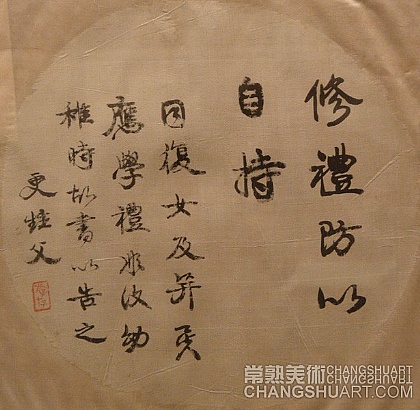 修禮防以
自持
同復女及笄矣
應學禮彤汝幼
稚時故書以告之
更甡父
常熟美術 CHANGSHUART
CHANGSHUART.COM